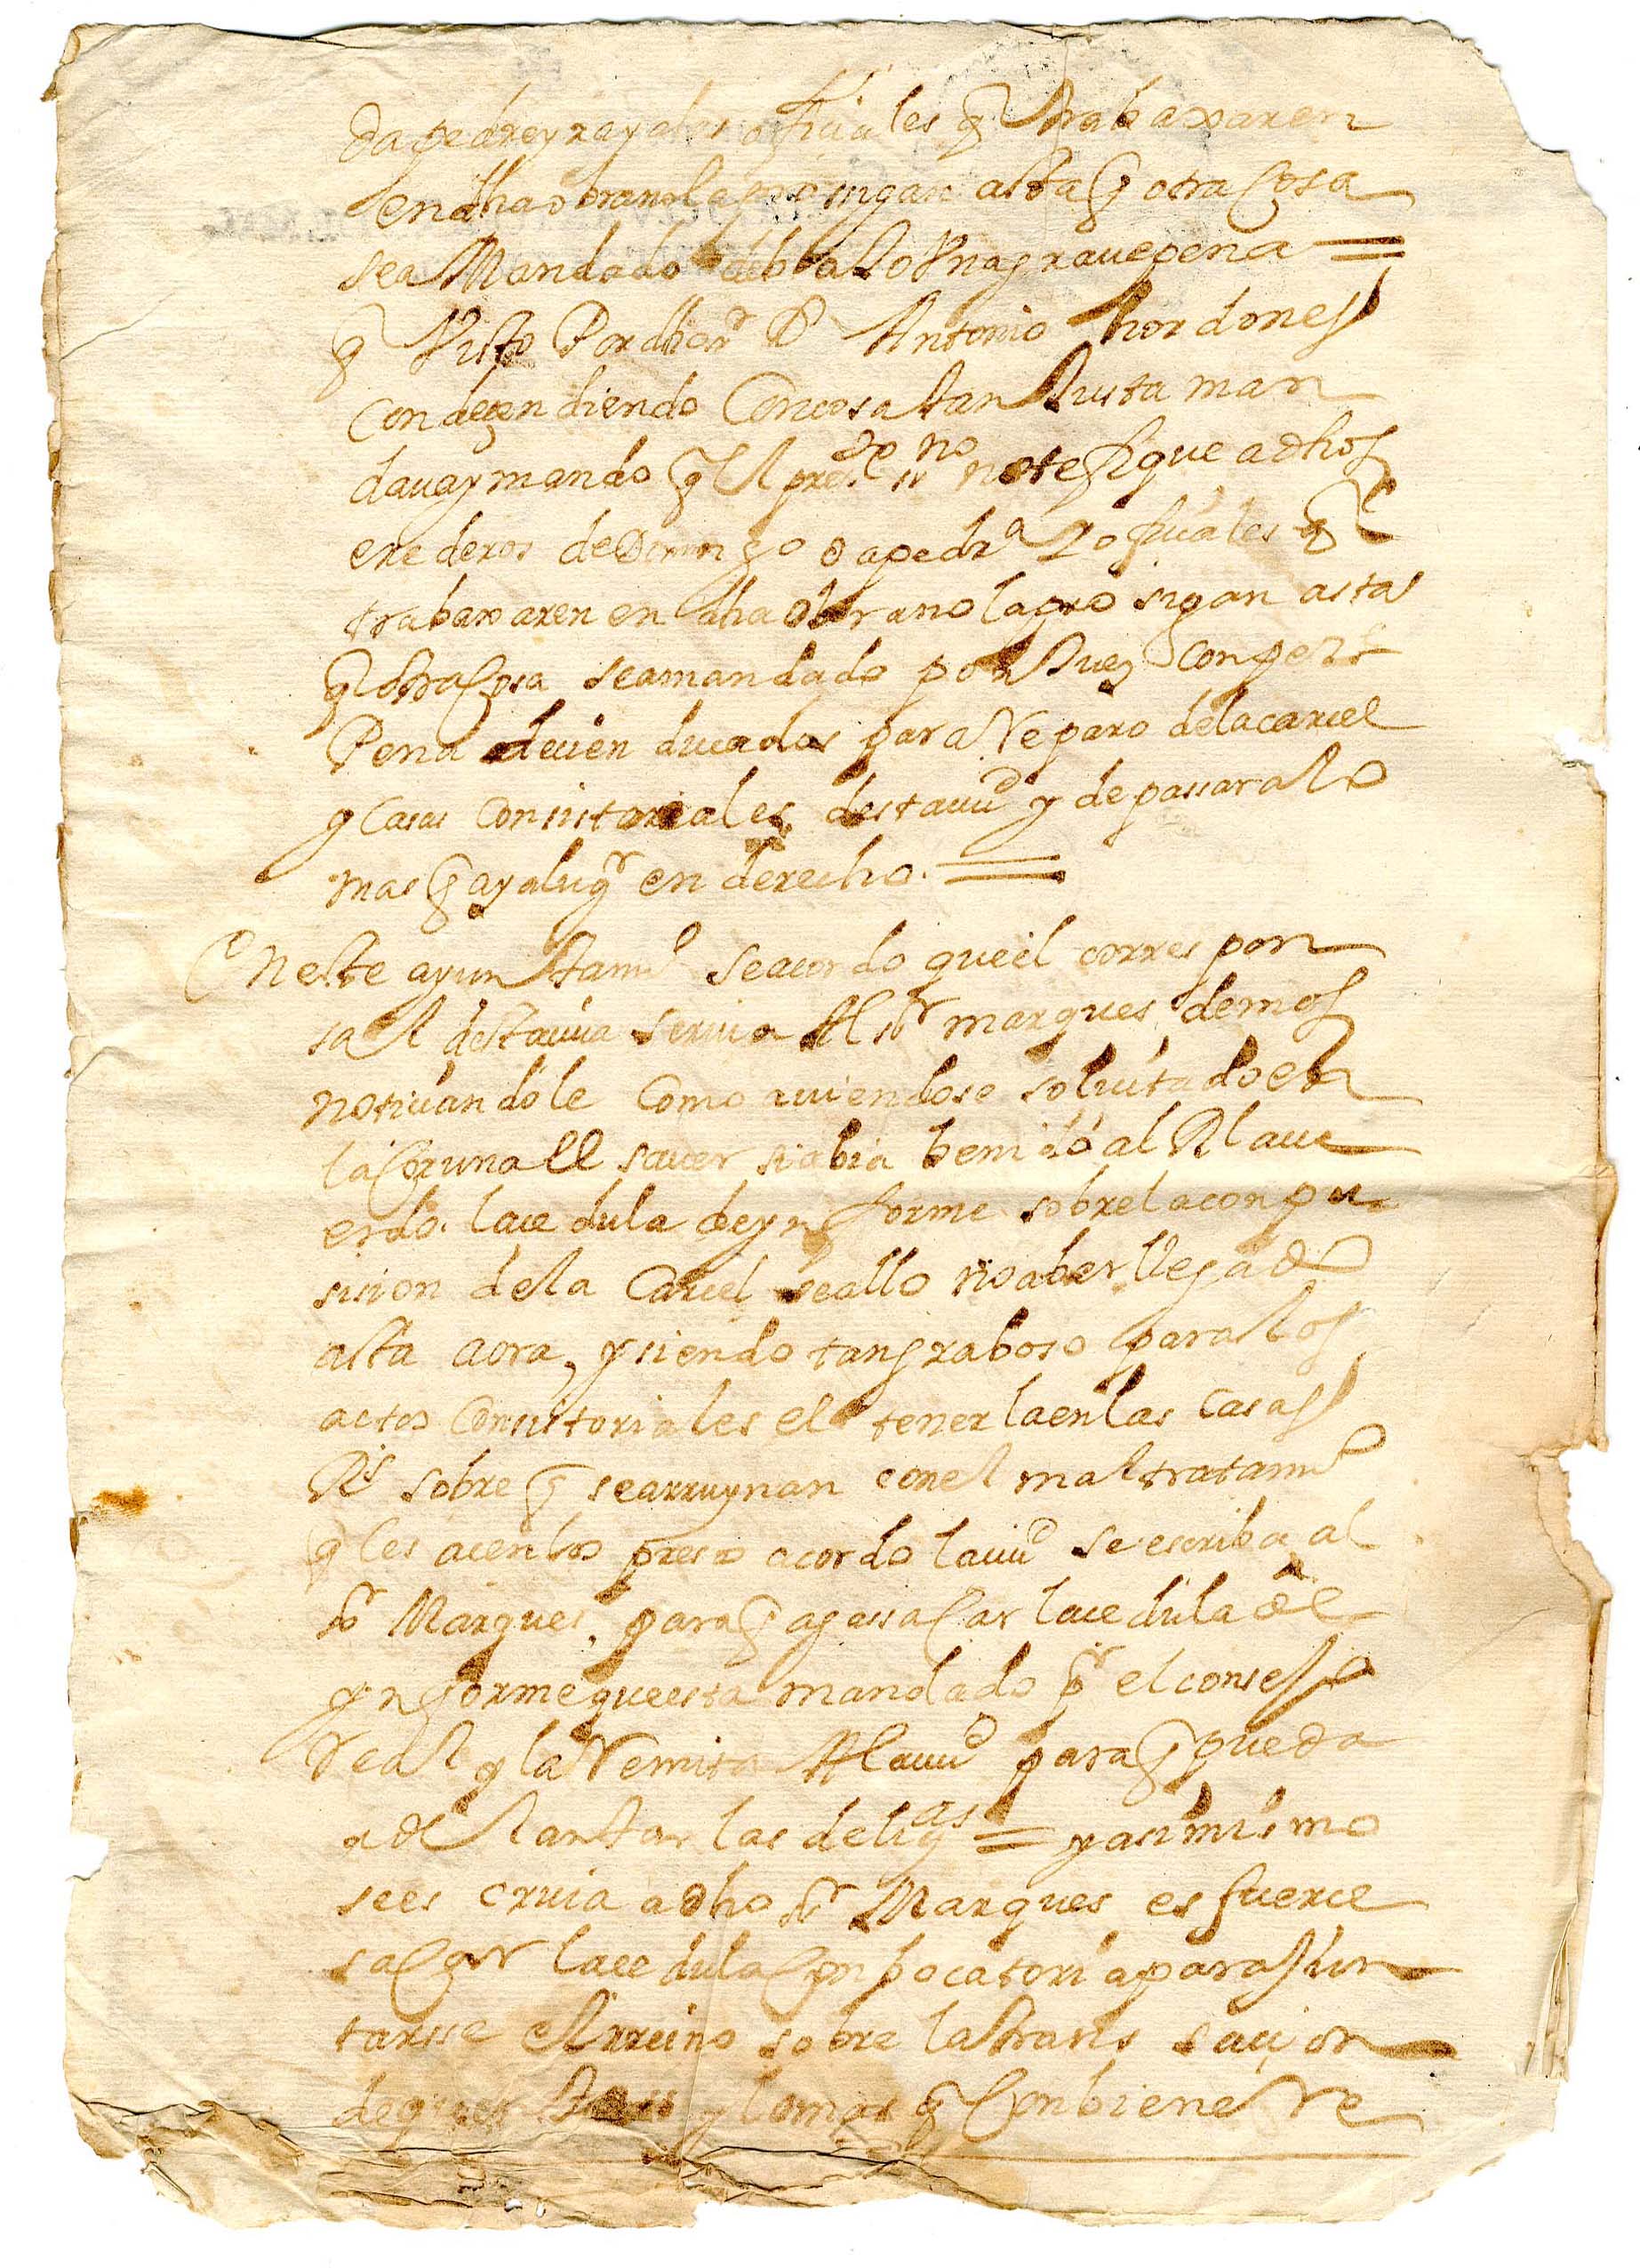 da pedreyra y alos ofiçiales q trabaxaren
en dha obra no la prosigan asta q otra cosa
sea Mandado debaxo Una graue pena =
q Visto Por dho sr Dn Antonio hordones
condeçendiendo Con cosa tan Justa man
daua y mando q el press.te ssno notefique a dhos
erederos de Domingo da pedra y ofiçiales q
trabaxaren en dha obra no la prosigan asta
q otra Cosa sea mandado por Juez Conpete
Pena de çien ducados para Reparo de la carçel
y Casas Consistoriales desta çiud y de passar a lo
mas q aya lugr en derecho. =
En este ayuntamto se acordo que el correspon
sal desta çiud escriua Al sr marques de mos
notiçiandole Como auiendose soliçitado en
la Coruna el sauer si abia benido al Rl acu
erdo. la çedula de ynforme sobre la conpu
siçion de la Carçel se allo no aber llegado
asta aora, y siendo tan graboso para los
actos Consistoriales el tenerla en las Casas
Rs sobre q se arruynan con el maltratamto
q les açen los presos acordo la çiud se escriba al
sr Marques, para q aga ssacar la çedula de
ynforme que esta mandado pr el consejo
real y la Remita A la çiud para q pueda
adelantar las deligas = y asimismo
se escriuia a dho sr Marques esfuerçe
sacar la çedula Conbocatoria para Jun
tarsse el rreino sobre la transaçion
de y lo mas q Conbiene Re